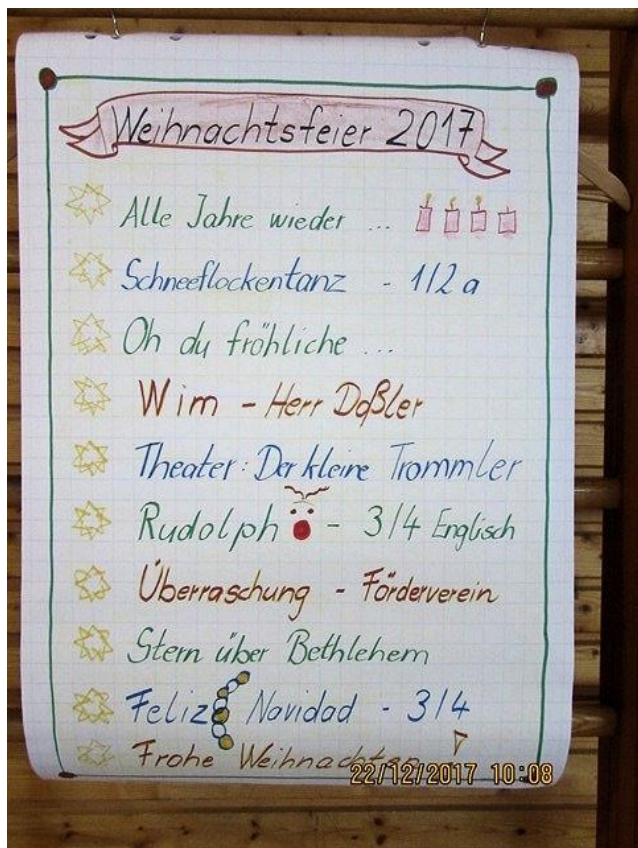 Weihnachtsfeier 2017
Alle Jahre wieder ...
Schneeflockentanz - 1/2 a
Oh du fröhliche ...
Wim - Herr Doßler
Theater: Der kleine Trommler
Rudolph - 3/4 Englisch
Überraschung - Förderverein
Stern über Bethlehem
Feliz Navidad - 3/4
Frohe Weihnachten
22/12/2017 10:08